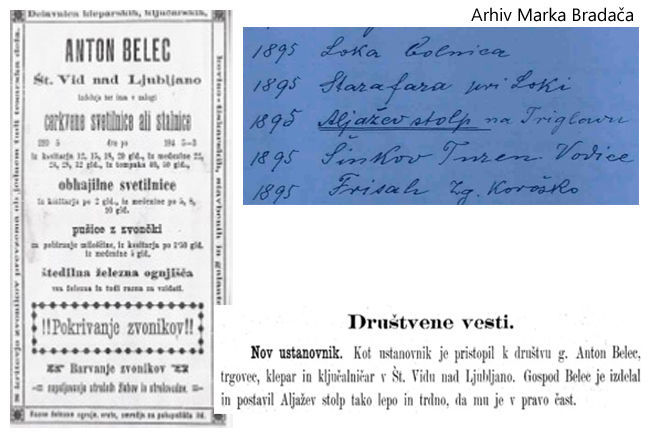 Arhiv Marka Bradača
Delavnica kleparskih, ključarskih,
ANTON BELEC
Št. Vid nad Ljubljano
izdeluje ter ima v zalogi
cerkvene svetilnice ali stalnice
iz kositarja 12, 15, 18, 20 gld., iz medenine 22,
obhajilne svetilnice
iz kositarja po 2 gld., iz medenine po 5, 8,
10 gld.
pušice z zvončki
za pobiranje miloščine, iz kositarja po 1·50 gld.
iz medenine 5 gld.
štedilna železna ognjišča
vsa železna in tudi razna za vzidati.
!!Pokrivanje zvonikov!!
Barvanje zvonikov
1895 Loka Colnica
1895 Starafara pri Loki
1895 Aljažev stolp na Triglavu
1895 Šinkov Turen Vodice
1895 Frisah Zg. Koroško
Društvene vesti.
Nov ustanovnik. Kot ustanovnik je pristopil k društvu g. Anton Belec,
trgovec, klepar in ključalničar v Št. Vidu nad Ljubljano. Gospod Belec je izdelal
in postavil Aljažev stolp tako lepo in trdno, da mu je v pravo čast.